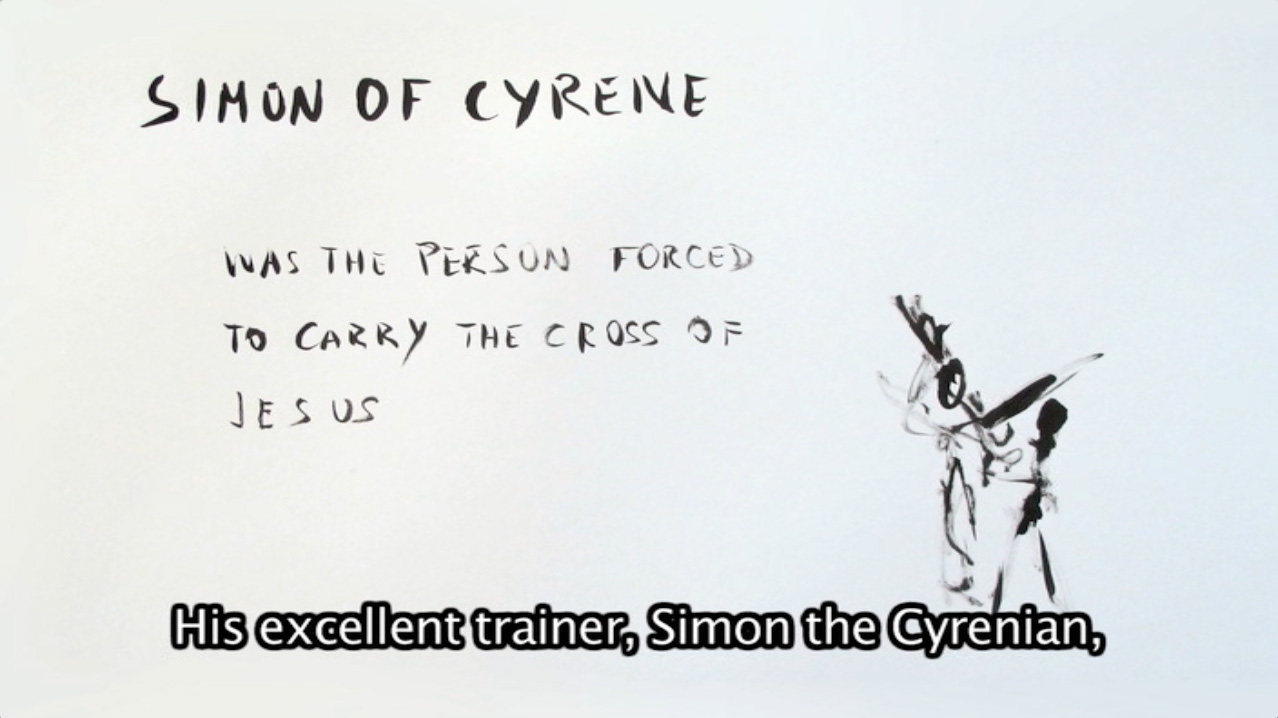 SIMON OF CYRENE
WAS THE PERSON FORCED
TO CARRY THE CROSS OF
JESUS
His excellent trainer, Simon the Cyrenian,